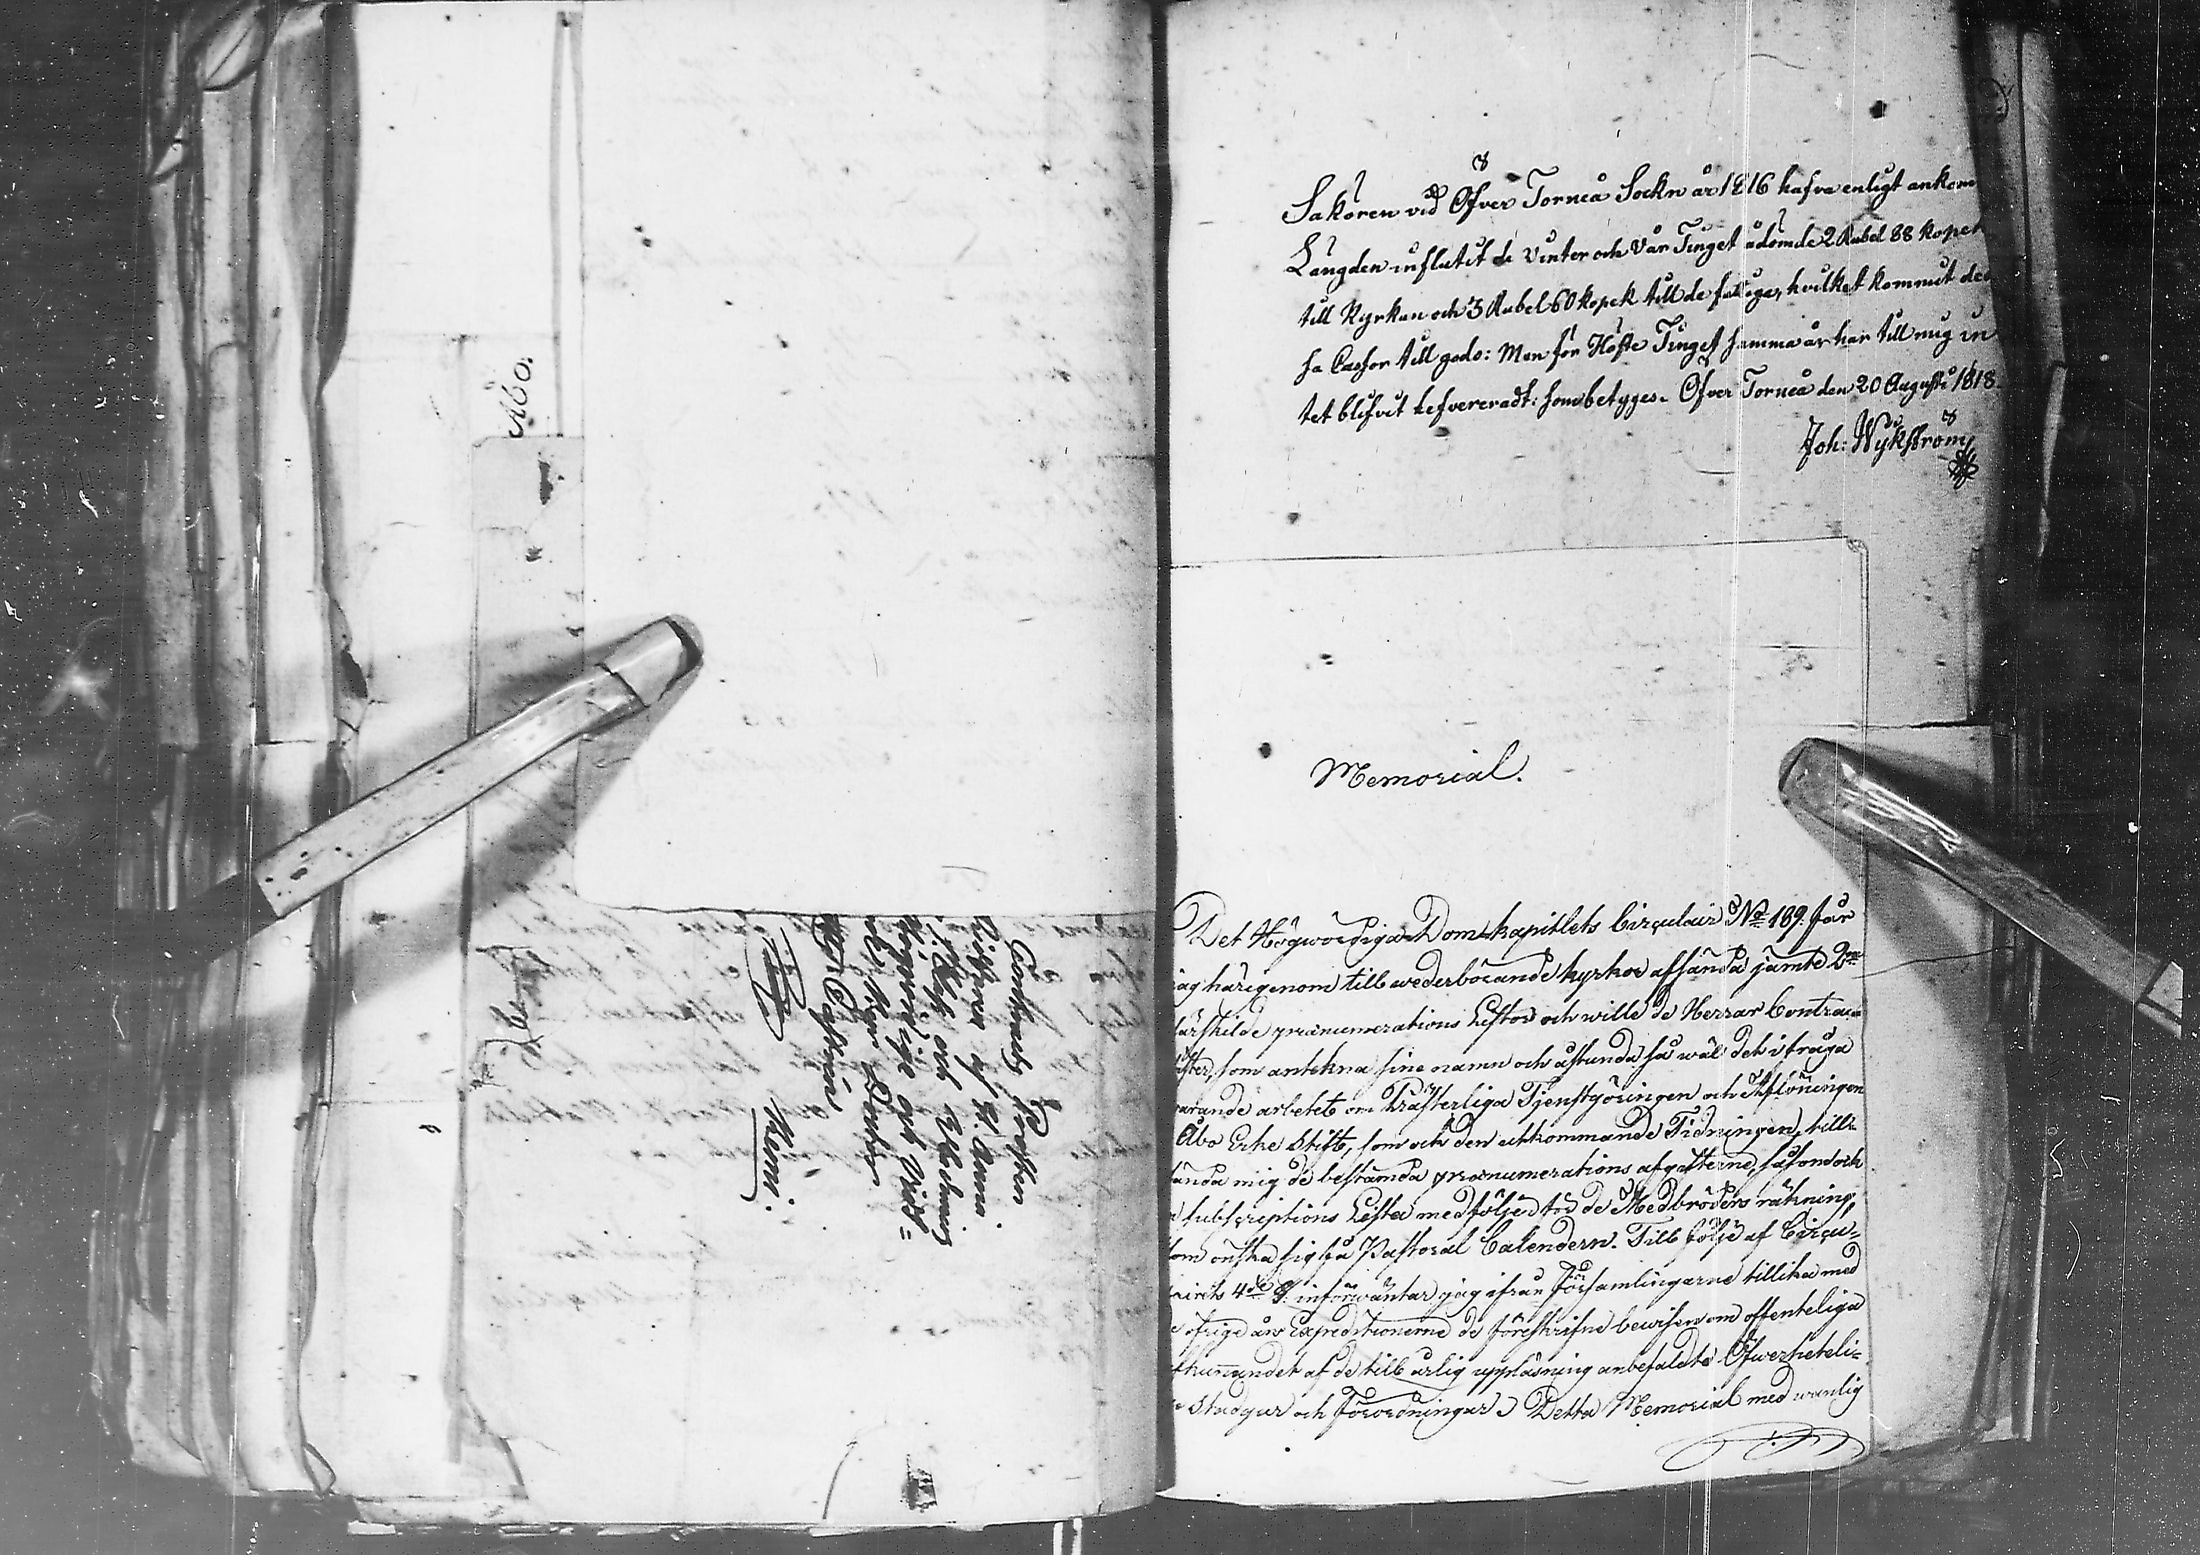 Åbo.
Contracts Prosten
Riddaren af W. Anna
Högvördige och Vidt-
Castrén
Kemi.
Sakören vid Öfver Torneå Sockn år 1816 hafva enligt ankom
Längden influtit de Vinter och Vår Tinget ådömde 2 Rubel 88 kopek
till Kyrkan och 3 Rubel 60 kopek till de fattige, hvilket kommit des
sa Cassor till godo: Men för Höste Tinget samma år har till mig in
tet blifvit lefvereradt: som betyges. Öfver Torneå den 20 Augusti 1818.
Joh: Wykström
Memorial.
Det Högwördiga Dom-kapitlets Circulair No 189. får
jag härigenom till wederbörande kyrkor afsända jämte 2ne
särskilde prænumerations Listor och wille de Herrar Contra-
som antekna sine namn och åstunda så wäl det i fråga
warande arbetet om Prästerliga Tjenstgöringen och Aflöningen
Åbo Erke Stift, som och den utkommande Tidningen, till-
sända mig de bestämda prænumerations afgifterne, såsom och
subscriptions Lista medföljer för de Medbröders räkning,
som önska sig få Pastoral Calendern. Till följe af Circu-
lairets 4de §. införwäntar jag ifrån Församlingarne tillika med
öfrige års Expeditionerne de föreskrifne bewisen om offenteliga
kunnandet af de till årlig uppläsning anbefaldte Öfwerheteli-
ge Stadgar och Förordningar. Detta Memorial med wanlig